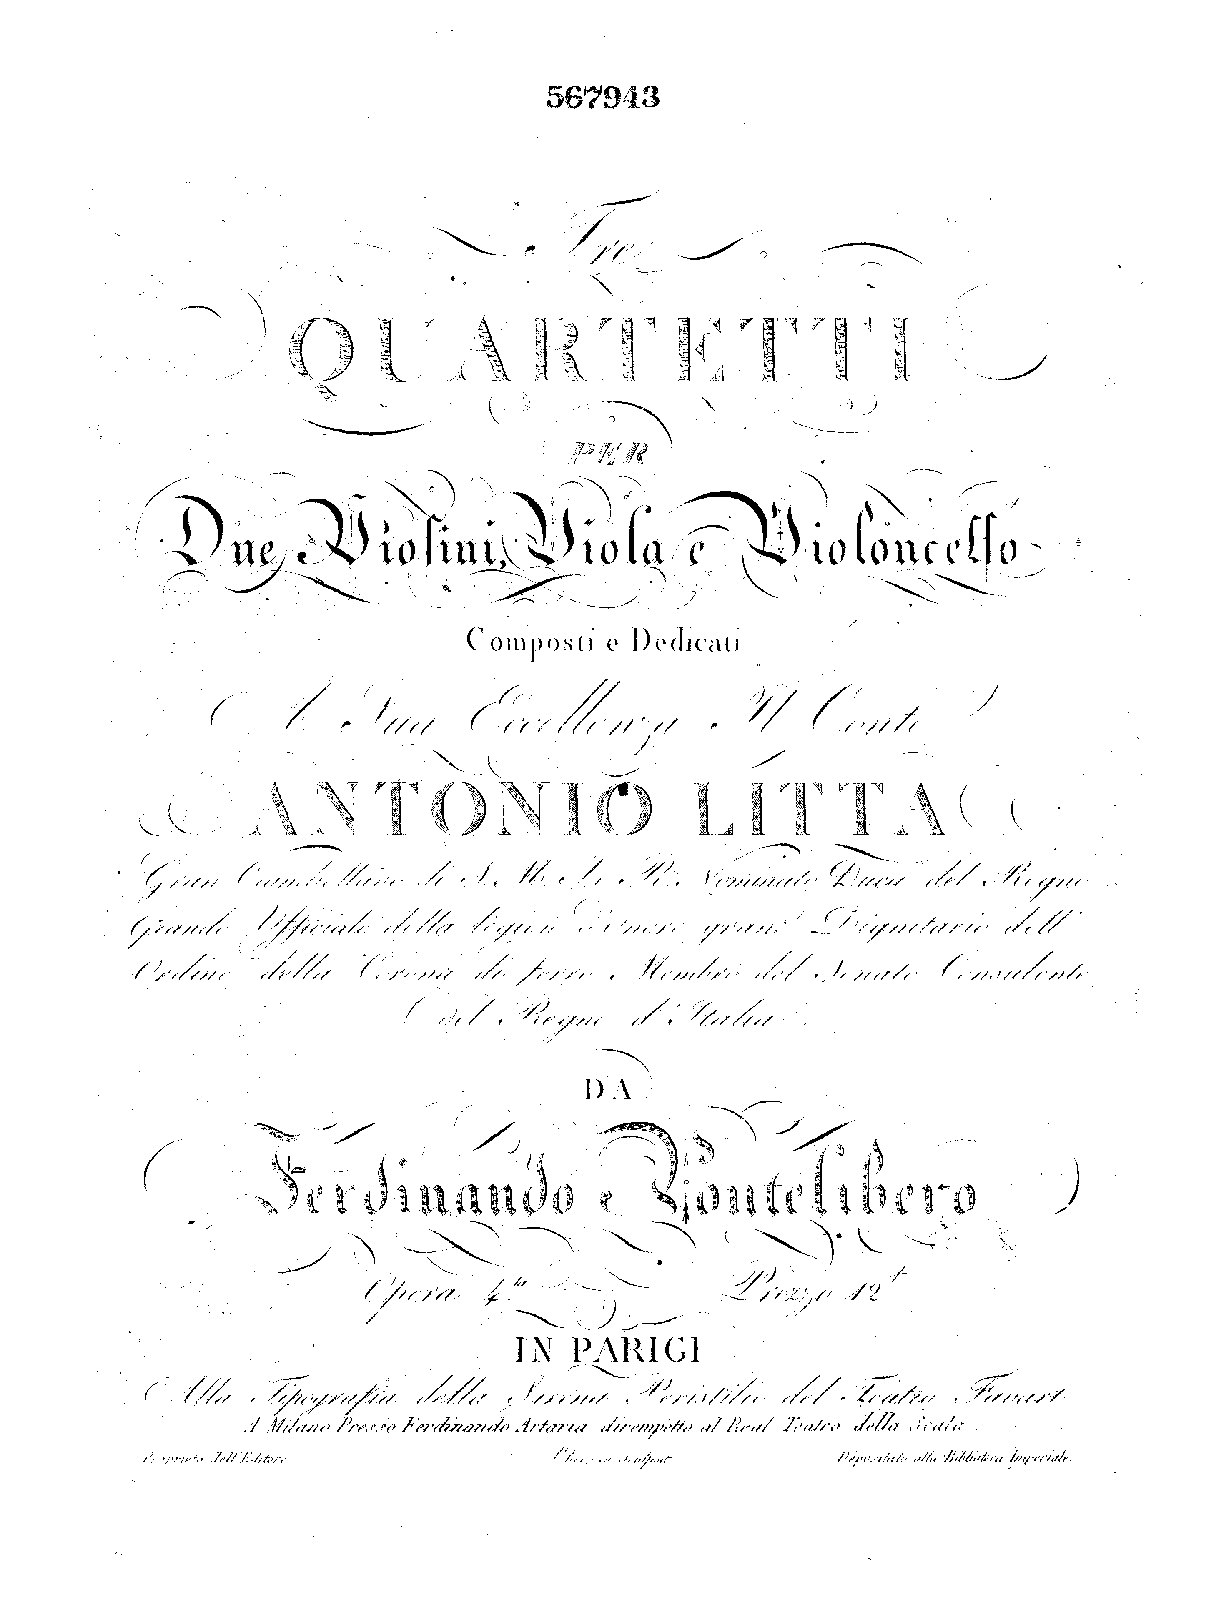 567943
Tre
QUARTETTI
PER
Due Violini, Viola e Violoncello
Composti e Dedicati
A Sua Eccellenza Il Conte
ANTONIO LITTA
Gran Ciambellano di S. M. I. R. Nominato Duca del Regno
Grande Ufficiale della legion d'onore gran Dignitario dell'
Ordine della Corona di ferro Membro del Senato Consulente
del Regno d'Italia
DA
Ferdinando Pontelibero
Opera 4.ta Prezzo 12
IN PARIGI
Alla Tipografia della Sirena Peristilio del Teatro Favart
A Milano Presso Ferdinando Artaria dirempetto al Real Teatro della Scala
Proprieta dell'Editore Sculpsit Depositato alla Biblioteca Imperiale